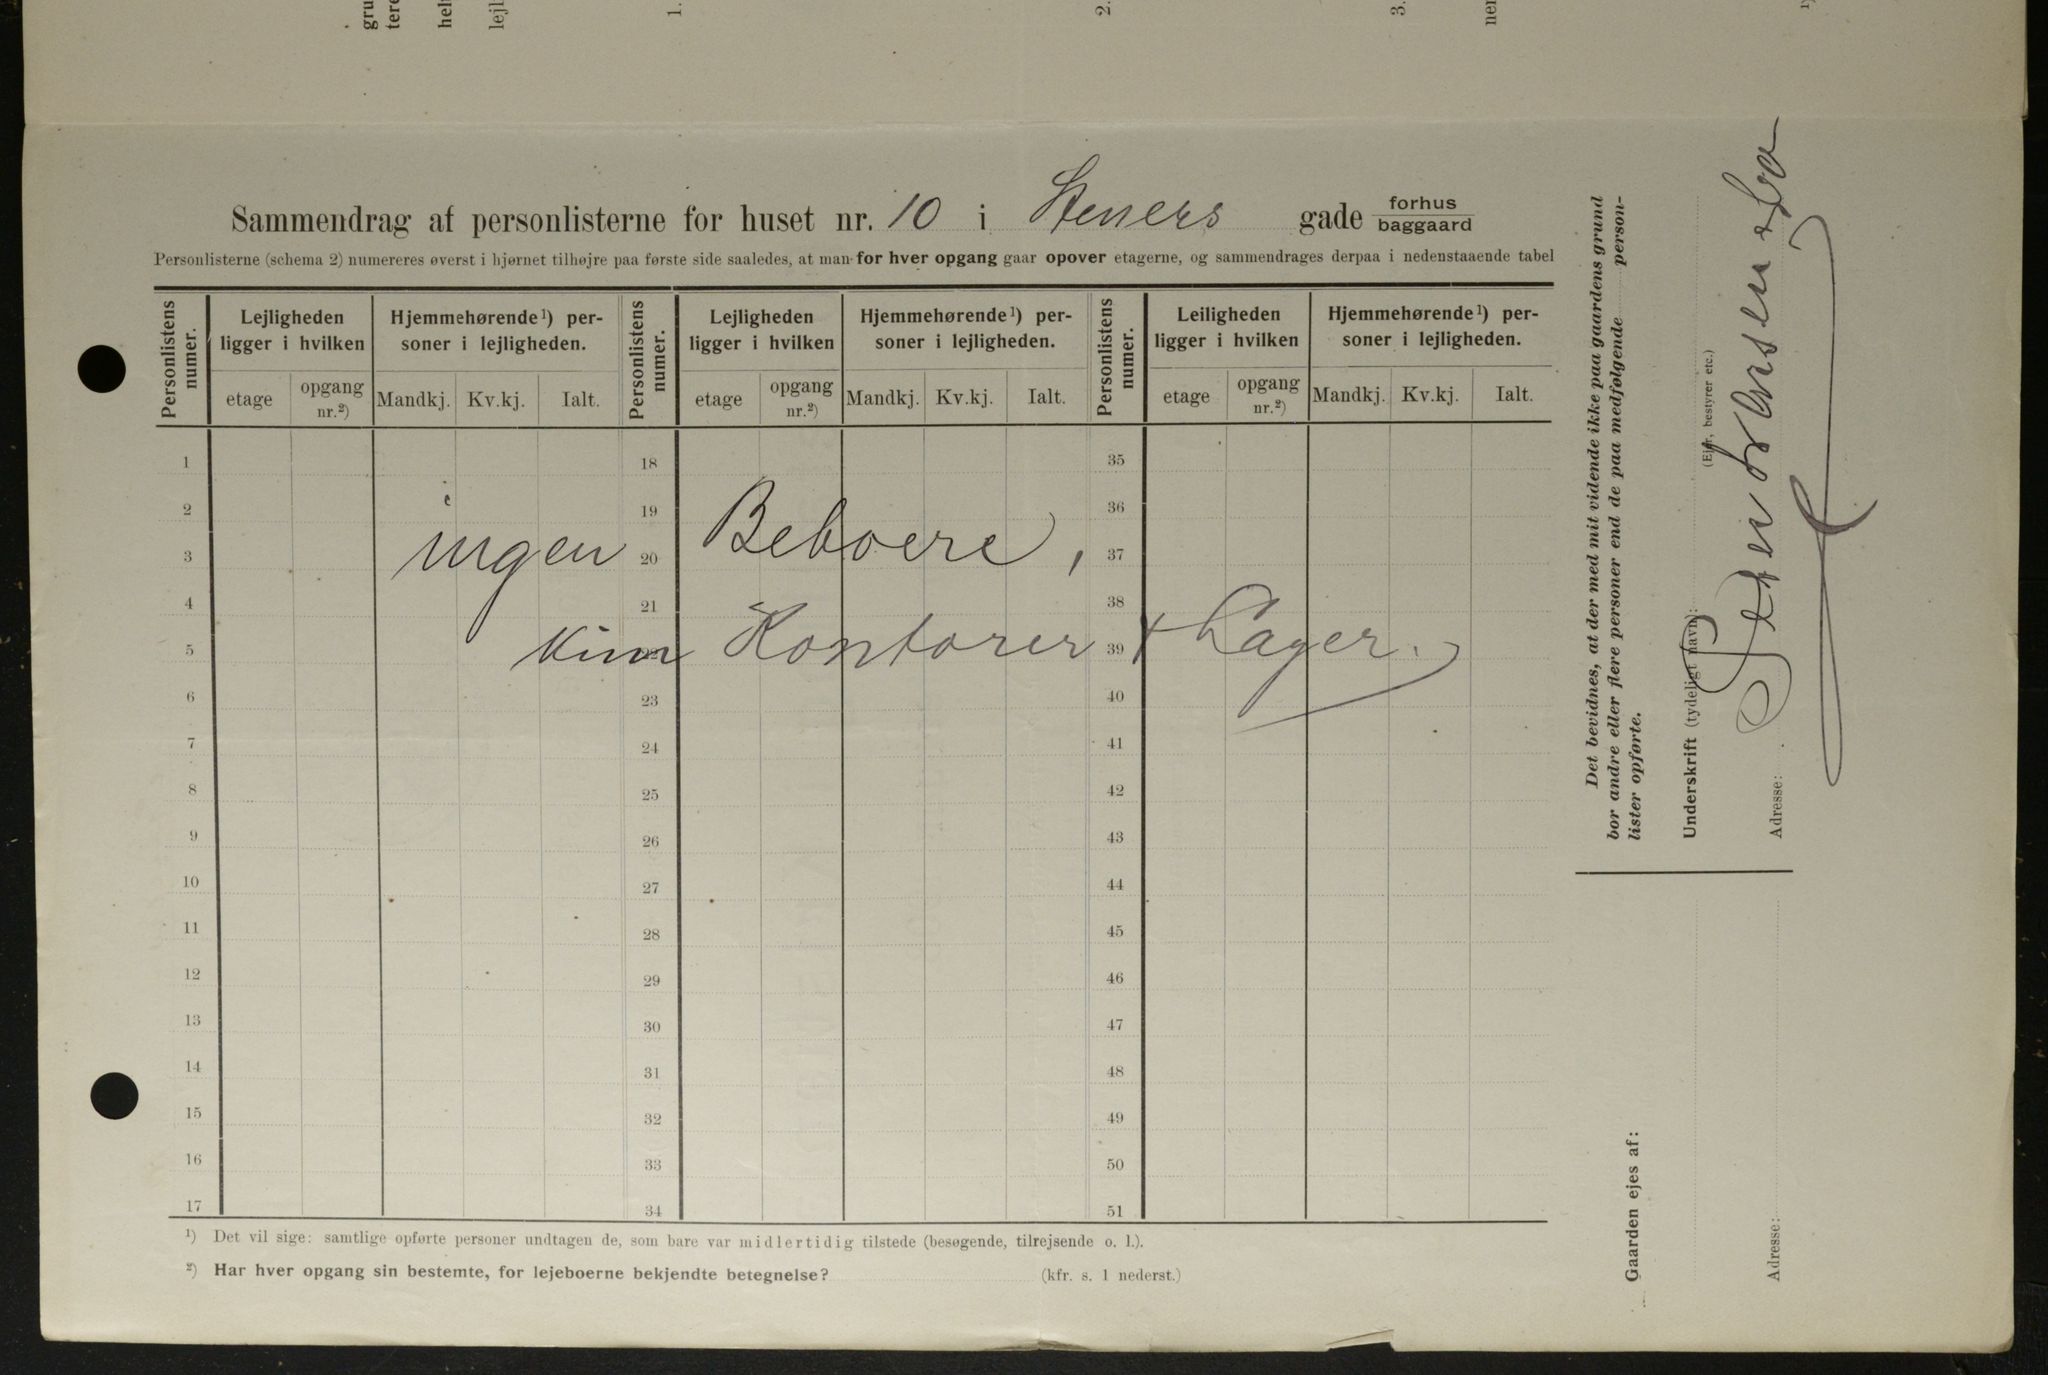 Sammendrag af personlisterne for huset nr. 10 i Steners gade forhus
baggaard
Personlisterne (schema 2) numereres øverst i hjørnet tilhøjre paa første side saaledes, at man for hver opgang gaar opover etagerne, og sammendrages derpaa i nedenstaaende tabel
Personlistens numer.
Lejligheden ligger i hvilken
Hjemmehørende¹) per-
soner i lejligheden.
etage
opgang nr.²)
Mandkj.
Kv.kj.
Ialt.
Personlistens numer.
Lejligheden ligger i hvilken
Hjemmehørende¹) per-
soner i lejligheden.
etage
opgang nr.²)
Mandkj.
Kv.kj.
Ialt.
Personlistens numer.
Leiligheden ligger i hvilken
Hjemmehørende¹) per-
soner i lejligheden.
etage
opgang nr.²)
Mandkj.
Kv.kj.
Ialt.
1 18 35
2 19 36
3 20 37
ingen Beboere,
4 21 38
5 22 39
kun Kontorer + Lager.
6 23 40
7 24 41
8 25 42
9 26 43
10 27 44
11 28 45
12 29 46
13 30 47
14 31 48
15 32 49
16 33 50
17 34 51
¹) Det vil sige: samtlige opførte personer undtagen de, som bare var midlertidig tilstede (besøgende, tilrejsende o. l.).
²) Har hver opgang sin bestemte, for lejeboerne bekjendte betegnelse? (kfr. s. 1 nederst.)
Det bevidnes, at der med mit vidende ikke paa gaardens grund
bor andre eller flere personer end de paa medfølgende person-
lister opførte.
Underskrift (tydeligt navn):
(Ejer, bestyrer etc.)
Adresse:
Gaarden ejes af:
Adresse:
gru
tere
hel
lejl
1.
2.
3.
ner
¹)